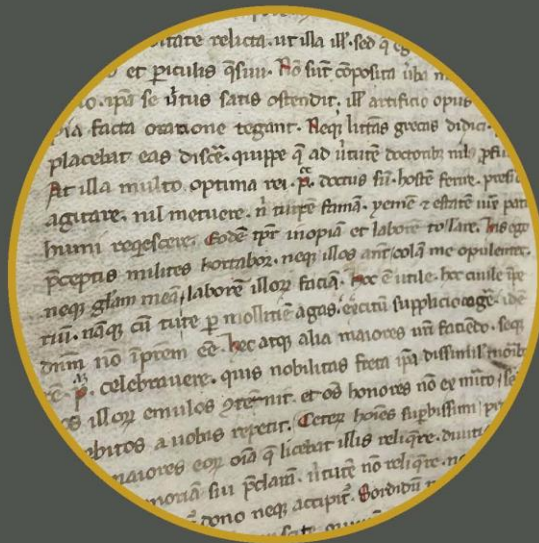 tate relicta. ut illa ill̄. sed q̄ eg
et ꝑiculis q̄sun. Nō sūt cōposita ūba m
o. ip̄a se ūtus satis ostendit. ill̄ artificio opus
pia facta oratione tegant. Neqꝫ litt̄as grecas didici.
placebat eas disc̄e. quippe q̄ ad ūtutē doctoribꝫ nil ꝓfu
At illa multo optima rei. p̄. doctus sū. hostē ferire. presi
agitare. nil metuere. n̄ turpē famā. yemē ⁊ estatē iux̄ pati
humi reqescere. Eodē tp̄r inopiā et labore tollare. his ego
p̄ceptis milites hortabor. neqꝫ illos art̄ colā me opulenter.
neqꝫ glam̄ meā laborē illoꝝ faciā. hoc ē utile. hoc ciuile īpe
riū. nāqꝫ cū tute ꝑ mollitiē agas. exercitū supplicio coḡe. id ē
dnm̄ nō īprem ēē. hec atqꝫ alia maiores ur̄i faciēdo. seqꝫ
celebrauere. quis nobilitas freta ip̄a dissimlis morib
illoꝝ emulos ꝯtemnit. et oēs honores nō ex mīto. se
bitos a uobis repetit. Ceteꝝ hoīes suꝑbissimi
maiores eoꝝ oīa q̄ licebat illis reliq̄re. diuiti
moriā sui p̄clam. ūtutē nō reliq̄re. ne
dono neqꝫ accipit̄. Sordidū